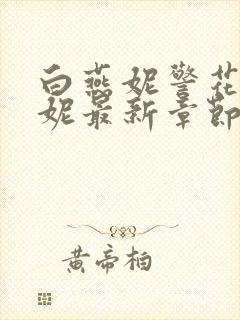 白燕妮警花
妮最新章節
黄帝柏